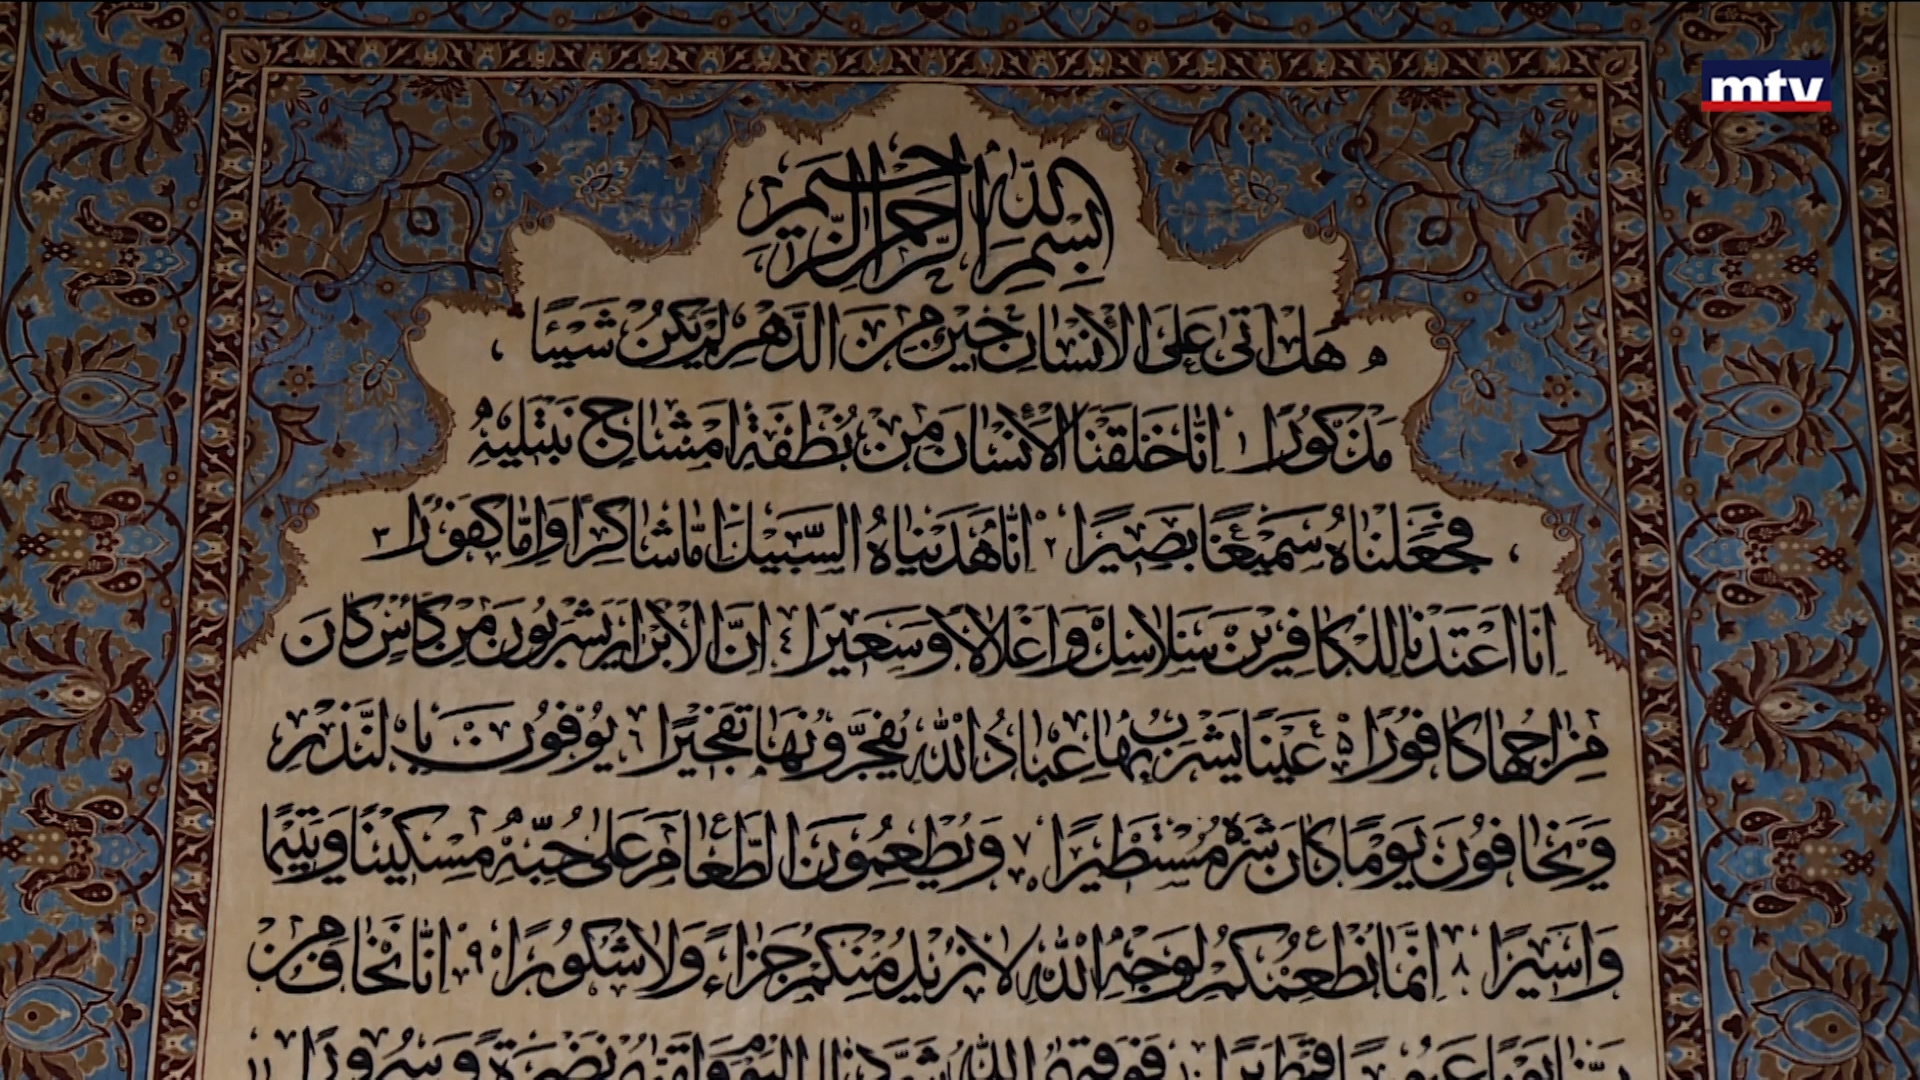 mtv
بسم الله الرحمن الرحيم
هل اتى على الأنسان حين من الدهر لم يكن شيئا
مذكورا ١ انا خلقنا الأنسان من نطفة امشاج نبتليه
فجعلناه سميعا بصيرا ٢ انا هديناه السبيل اما شاكرا واما كفورا ٣
انا اعتدنا للكافرين سلاسل واغلالا وسعيرا ٤ ان الابرار يشربون من كاس كان
مزاجها كافورا ٥ عينا يشرب بها عباد الله يفجرونها تفجيرا ٦ يوفون بالنذر
ويخافون يوما كان شره مستطيرا ٧ ويطعمون الطعام على حبه مسكينا ويتيما
واسيرا ٨ انما نطعمكم لوجه الله لا نريد منكم جزاء ولا شكورا ٩ انا نخاف من
ربنا يوما عبوسا قمطريرا ١٠ فوقيهم الله شر ذلك اليوم ولقيهم نضرة وسرورا ١١